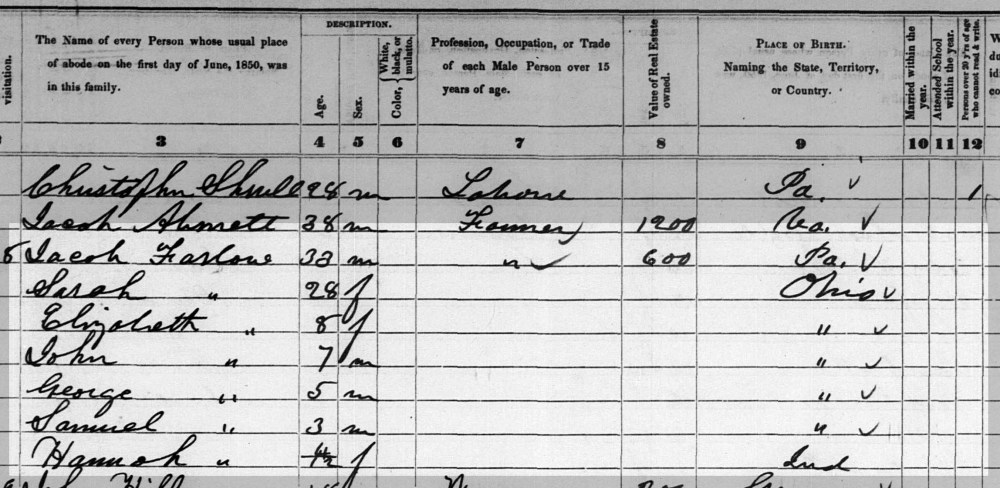 DESCRIPTION.
The Name of every Person whose usual place of abode on the first day of June, 1850, was in this family.
Age.
Sex.
Color, White, black, or mulatto.
Profession, Occupation, or Trade of each Male Person over 15 years of age.
Value of Real Estate owned.
PLACE OF BIRTH.
Naming the State, Territory, or Country.
Married within the year.
Attended School within the year.
Persons over 20 y'rs of age who cannot read & write.
visitation.
3 4 5 6 7 8 9 10 11 12
Christophn 28 m Labore Pa. 1
Jacob 38 m Farmer 1200 Va.
8 Jacob Farlow 32 m " 600 Pa.
Sarah " 28 f Ohio
Elizabeth " 8 f "
John " 7 m "
George " 5 m "
Samuel " 3 m "
Hannah " f Ind